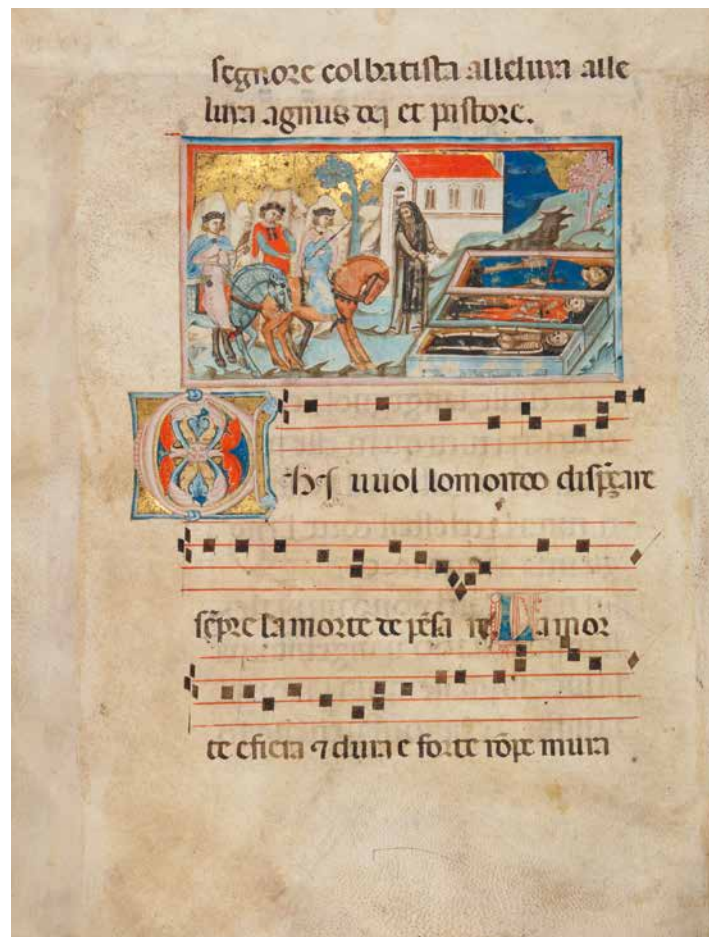 segnore col batista alleluia alle
luia agnus dei et pistore.
Chi vuol lo mondo disp̄çare
sēpre la morte de pēsare La mor
te e fiera ⁊ dura e forte rōpe mura